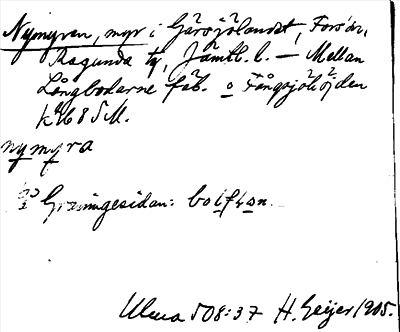 Nymyren, myr i Gåxsjölandet, Forsån,
Ragunda tg, Jämtl. l. — Mellan
Långbodarne fäb. o Fångsjöhöjden
k. 68 5 M.
nymyra
Graningesidan:
Ulma 508:37 H. Geijer 1905.